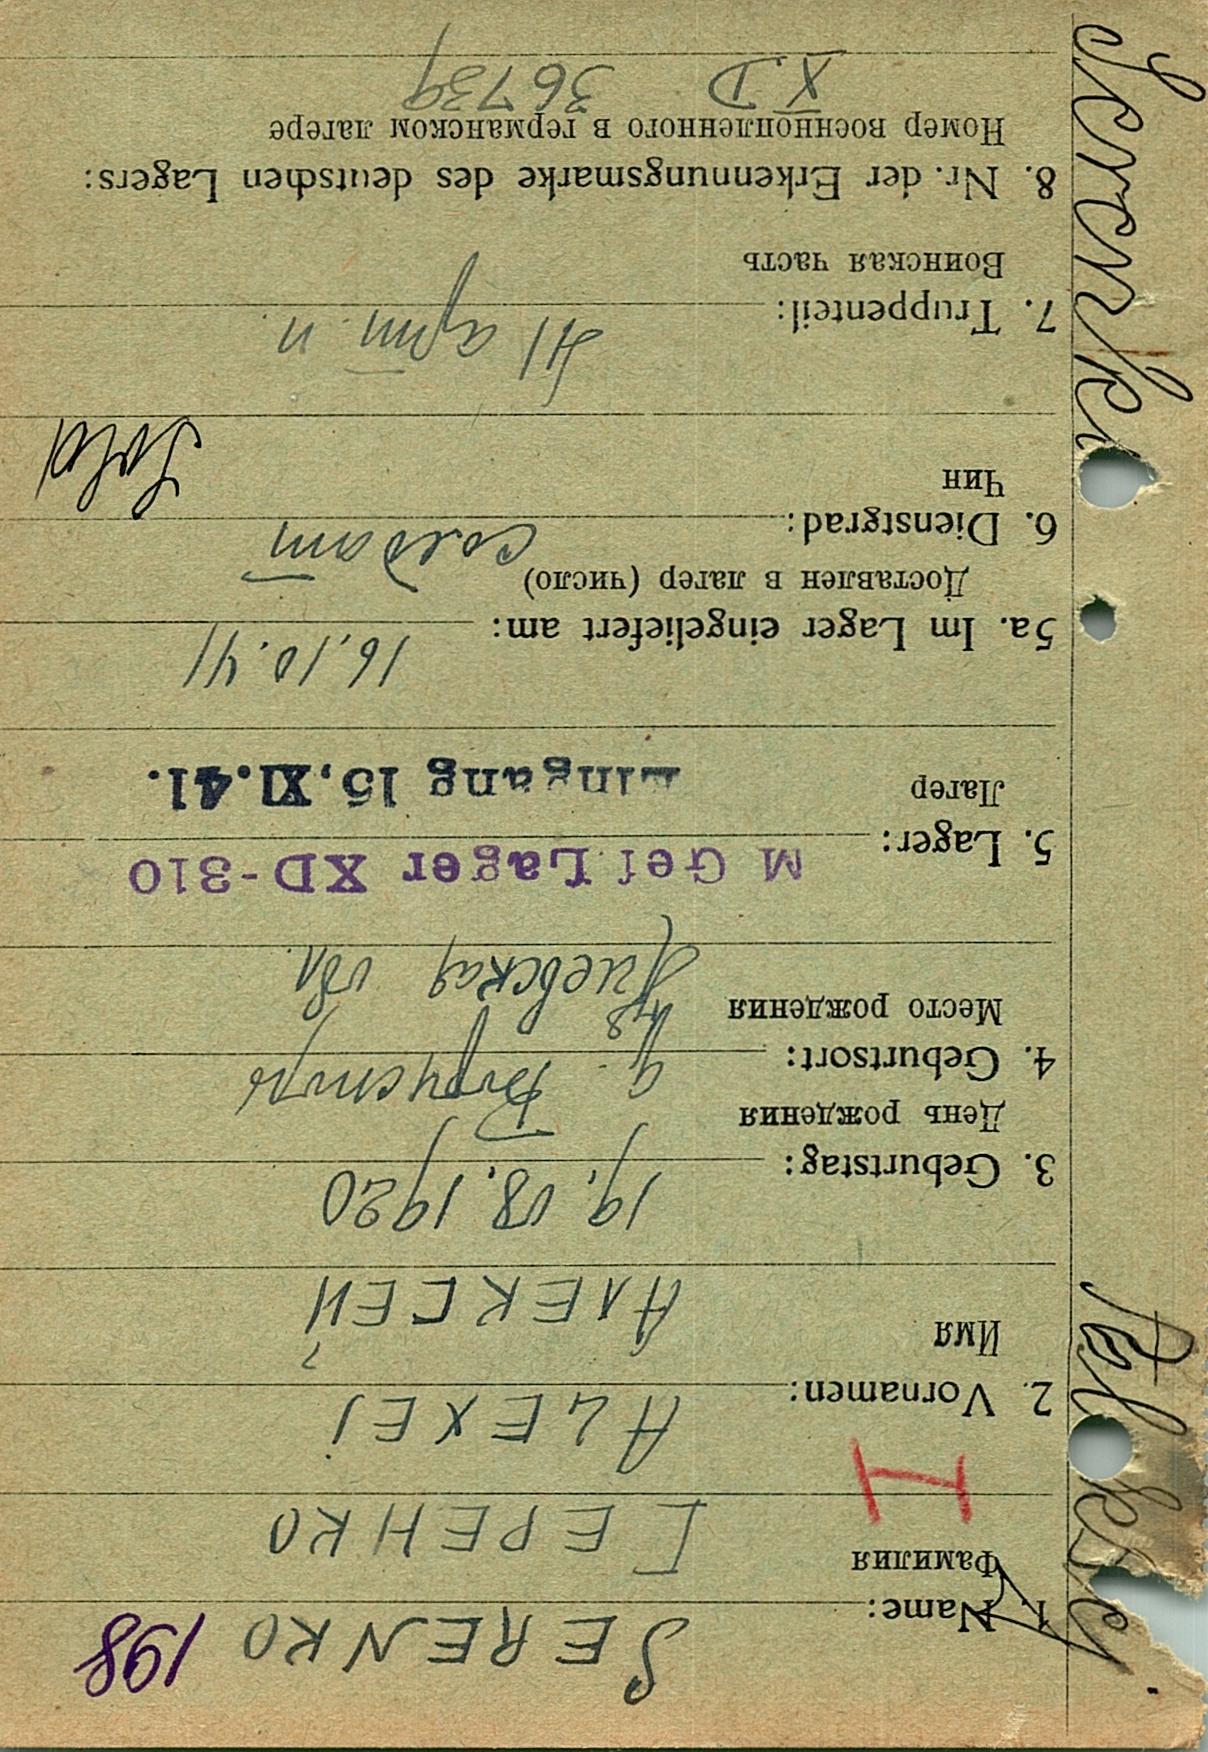 198
1. Name: SERENKO
Фамилия СЕРЕНКО
I
2. Vornamen: ALEXEJ
Имя АЛЕКСЕЙ
3. Geburtstag: 19.08.1920
День рождения
4. Geburtsort:
Место рождения
Киевская обл.
5. Lager: M Gef Lager XD-310
Лагер Eingang 15.XI.41.
5a. Im Lager eingeliefert am: 16.10.41
Доставлен в лагер (число)
6. Dienstgrad: солдат
Чин Sold
7. Truppenteil: 41 арт. п.
Воинская часть
8. Nr. der Erkennungsmarke des deutschen Lagers:
Номер военнопленного в германском лагере
X D 36739